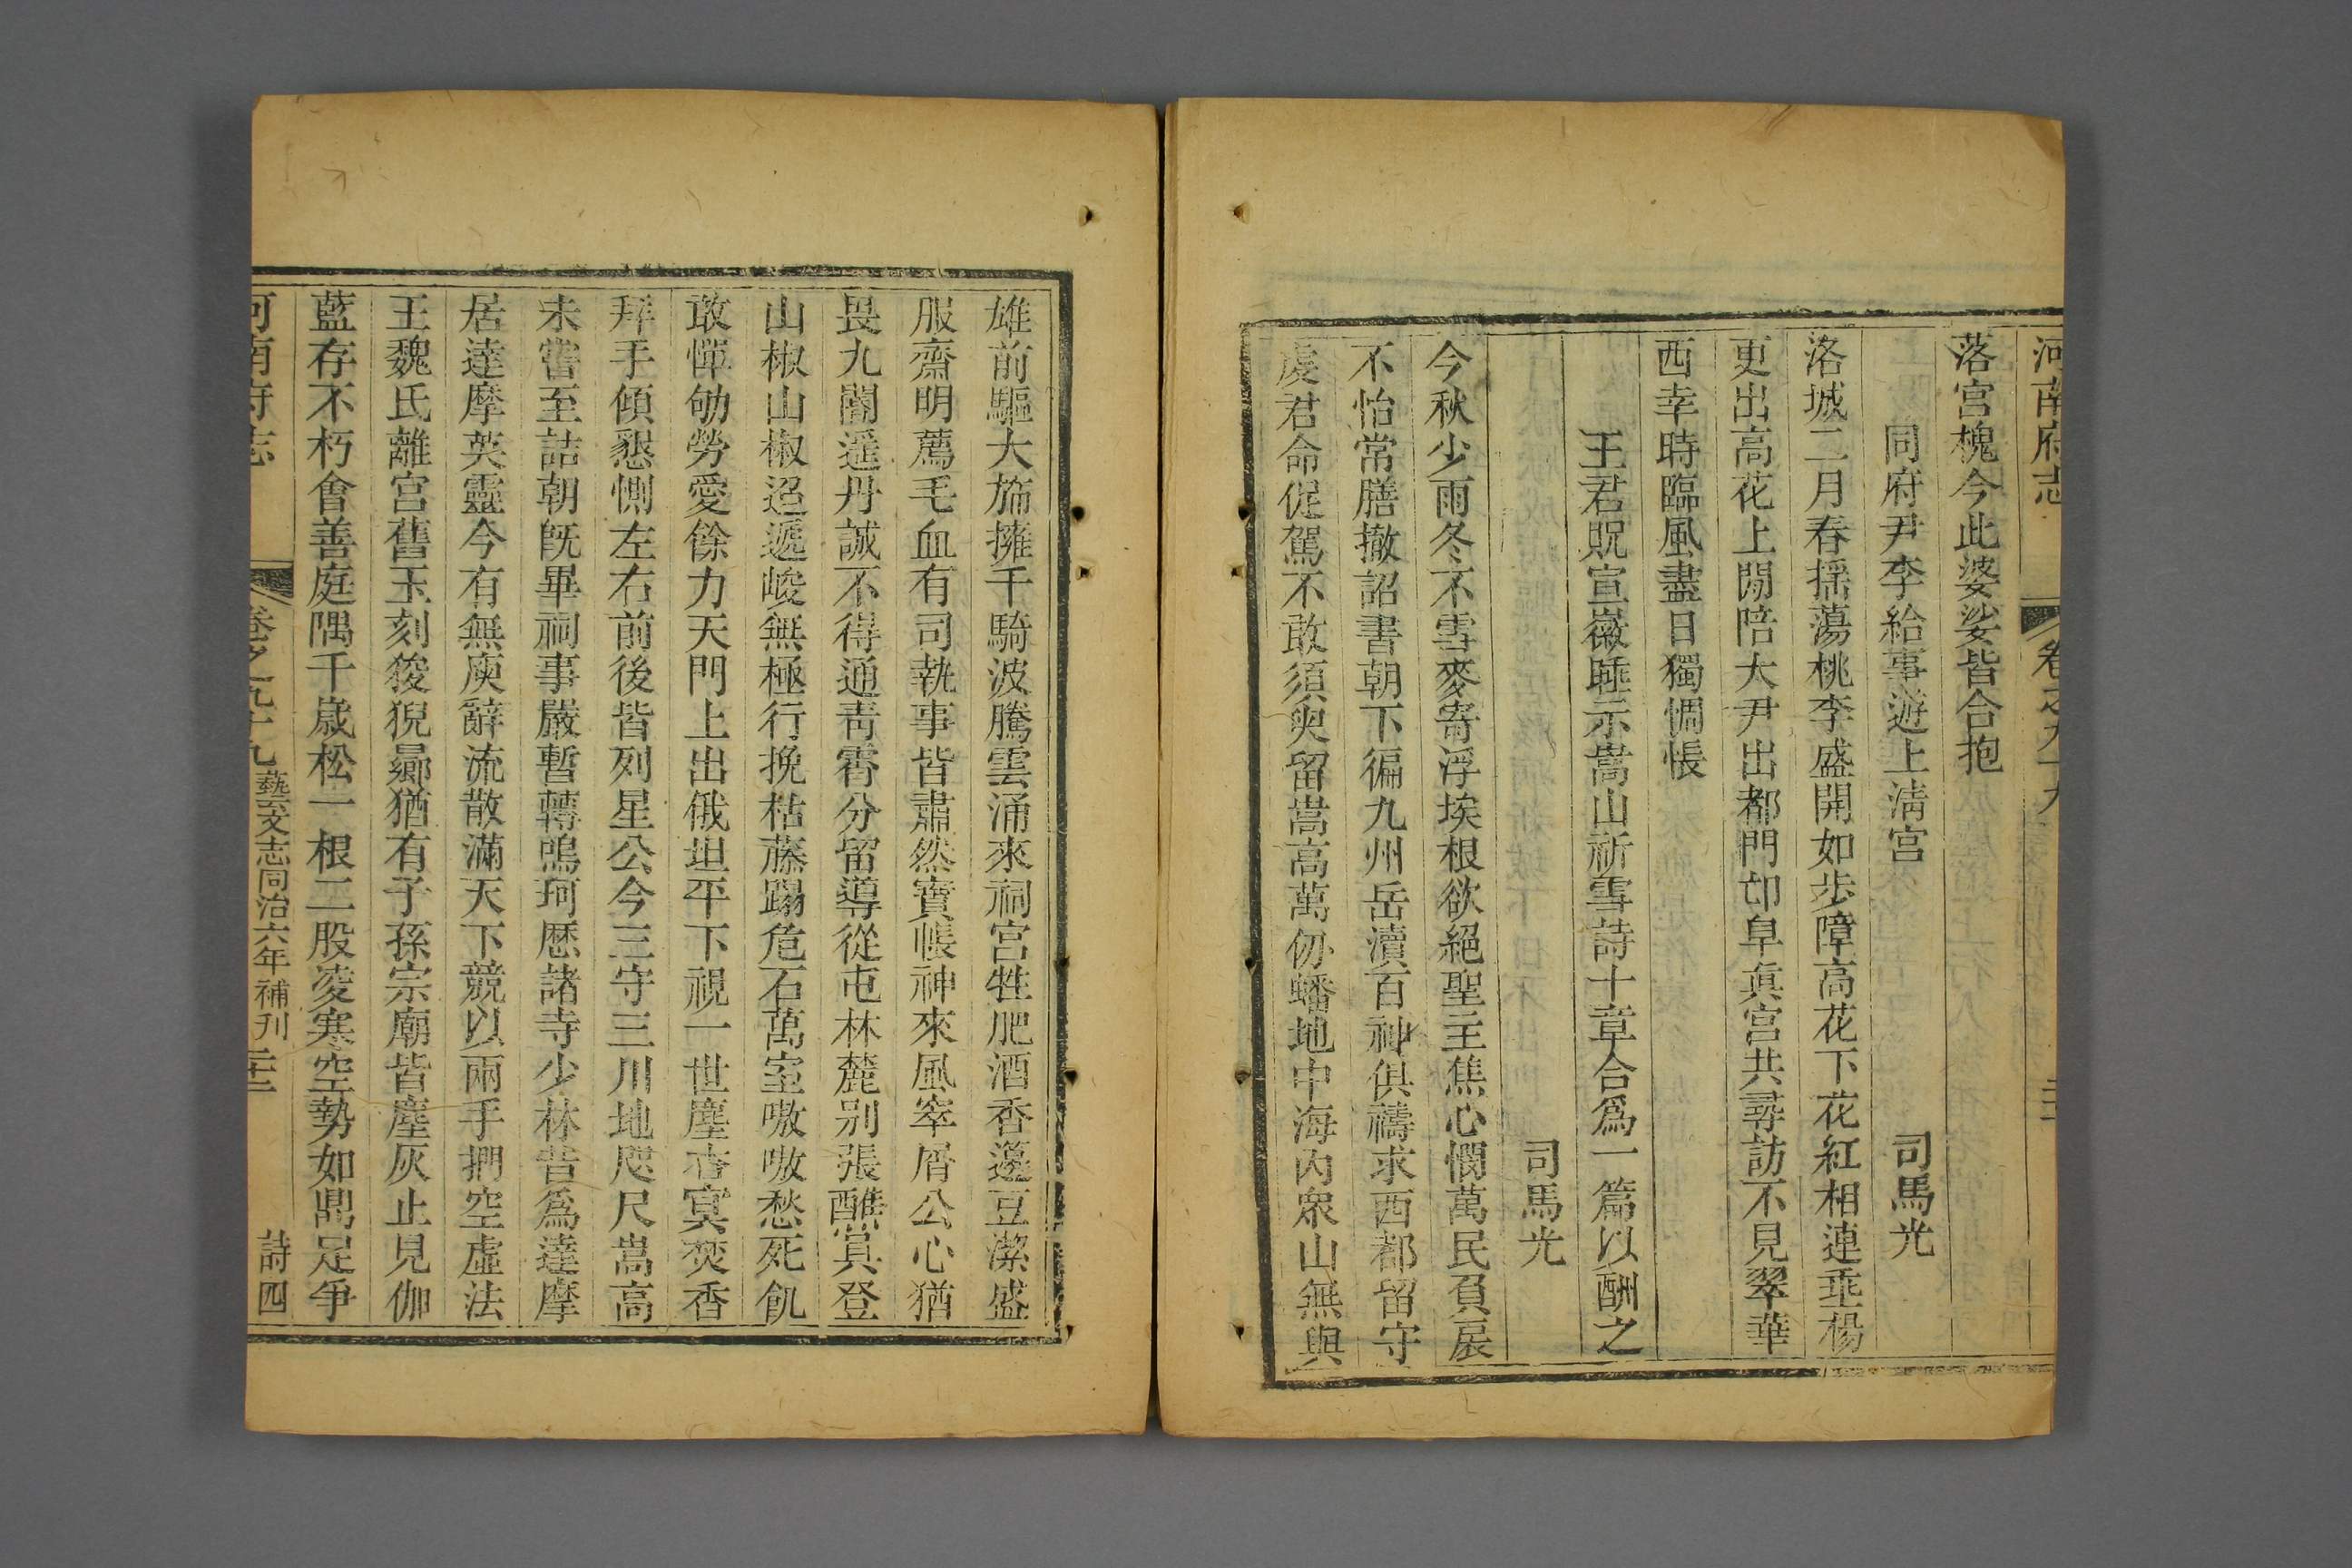 河南府志 卷之九十九
落宮槐今此婆娑皆合抱
同府尹李給事遊上清宮 司馬光
洛城二月春搖蕩桃李盛開如步障高花下花紅相連垂楊
更出高花上閒陪大尹出都門邙阜真宮共尋訪不見翠華
西幸時臨風盡日獨惆悵
王君貺宣徽睡示嵩山祈雪詩十章合爲一篇以酬之
司馬光
今秋少雨冬不雪麥寄浮埃根欲絕聖主焦心憫萬民負扆
不怡常膳撤詔書朝下徧九州岳瀆百神俱禱求西都留守
虔君命促駕不敢須臾留嵩高萬仞蟠地中海內衆山無與
雄前驅大斾擁千騎波騰雲涌來祠宮牲肥酒香籩豆潔盛
服齋明薦毛血有司執事皆肅然寶帳神來風窣屑公心猶
畏九閽遥丹誠不得通靑霄分留導從屯林麓別張醮具登
山椒山椒迢遞峻無極行挽枯藤蹋危石萬室嗷嗷愁死飢
敢憚劬勞愛餘力天門上出俄坦平下視一世塵杳冥焚香
拜手傾懇惻左右前後皆列星公今三守三川地咫尺嵩高
未嘗至詰朝旣畢祠事嚴暫轉鳴珂歷諸寺少林昔爲達摩
居達摩英靈今有無廋辭流散滿天下競以兩手捫空虛法
王魏氏離宮舊玉刻狻猊㬎猶有子孫宗廟皆塵灰止見伽
藍存不朽會善庭隅千歲松一根二股凌寒空勢如鼎足爭
河南府志 卷之九十九 藝文志同治六年補刊 詩四